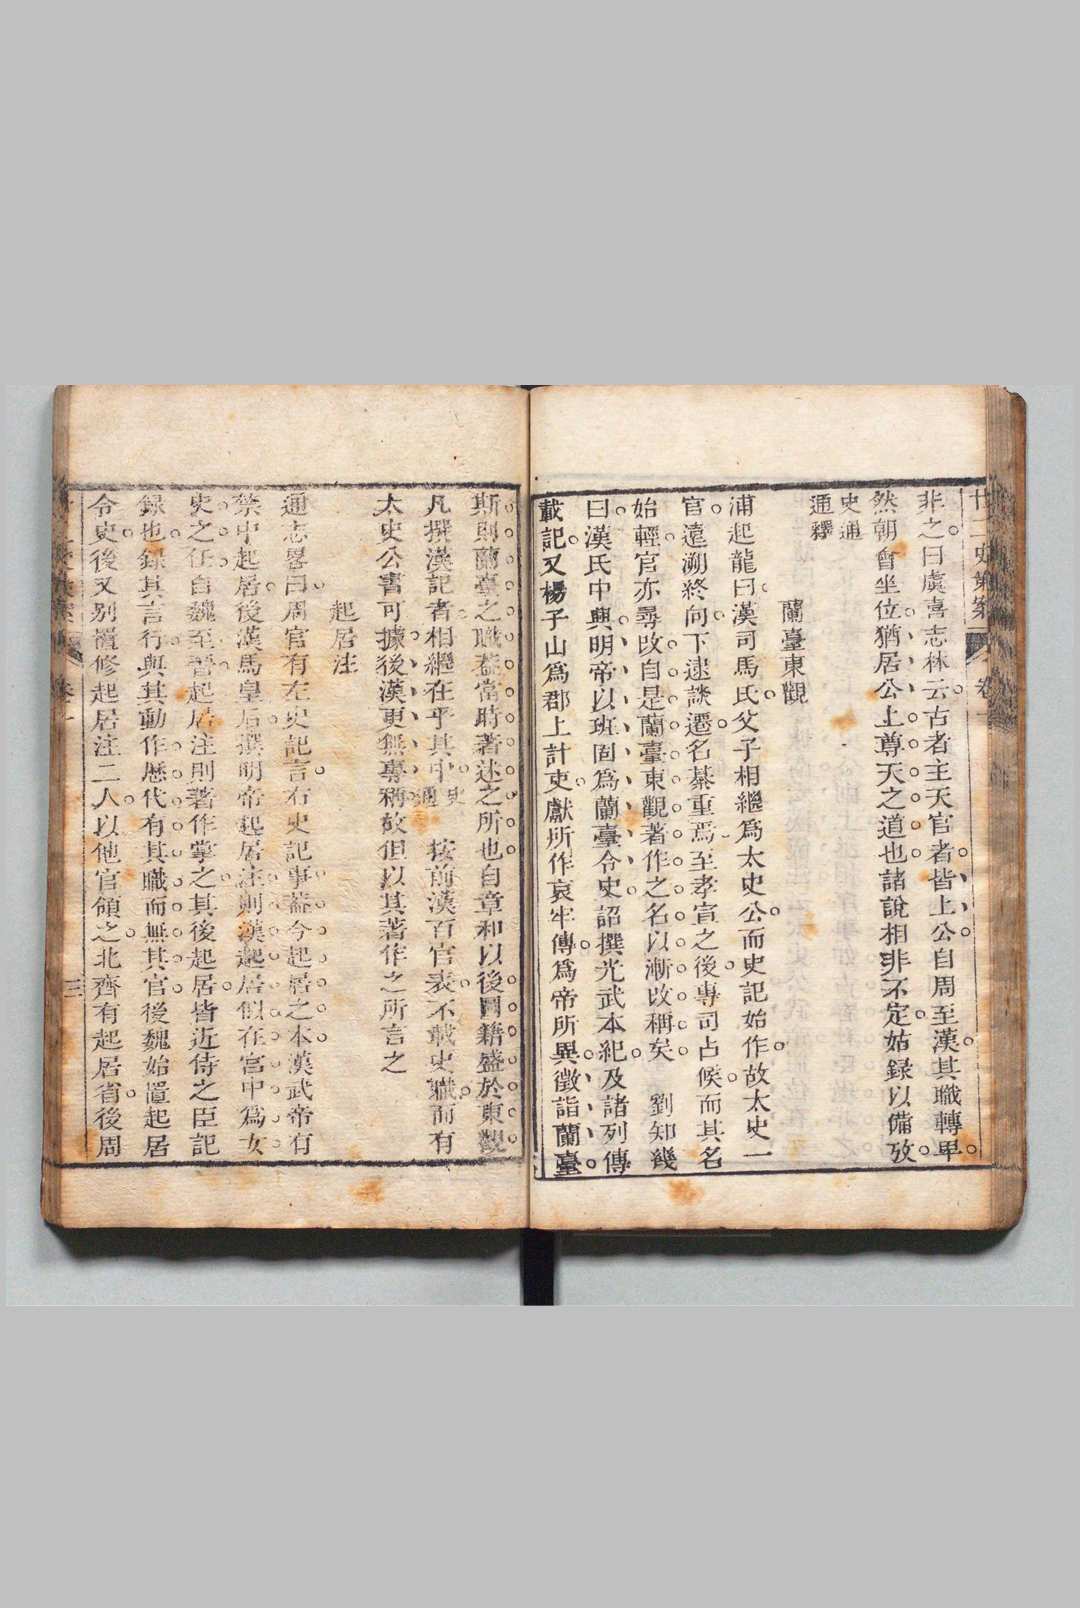 廿二史
卷一
非之曰虞喜志林云古者主天官者皆上公自周至漢其職轉卑
然朝會坐位猶居公上尊天之道也諸說相非不定姑録以備攷
史通
通釋
蘭臺東觀
浦起龍曰漢司馬氏父子相繼爲太史公而史記始作故太史一
官遠溯終向下逮談遷名綦重焉至孝宣之後專司占候而其名
始輕官亦尋改自是蘭臺東觀著作之名以漸改稱矣 劉知幾
曰漢氏中興明帝以班固爲蘭臺令史詔撰光武本紀及諸列傳
載記又楊子山爲郡上計吏獻所作哀牢傳爲帝所異徵詣蘭臺
斯則蘭臺之職葢當時著述之所也自章和以後圖籍盛於東觀
凡撰漢記者相繼在乎其中 史通 按前漢百官表不載史職而有
太史公書可據後漢更無專稱故但以其著作之所言之
起居注
通志畧曰周官有左史記言右史記事葢今起居之本漢武帝有
禁中起居後漢馬皇后撰明帝起居注則漢起居似在宮中爲女
史之任自魏至晉起居注則著作掌之其後起居皆近侍之臣記
録也録其言行與其動作歷代有其職而無其官後魏始置起居
令史後又别置修起居注二人以他官領之北齊有起居省後周
卷一
三